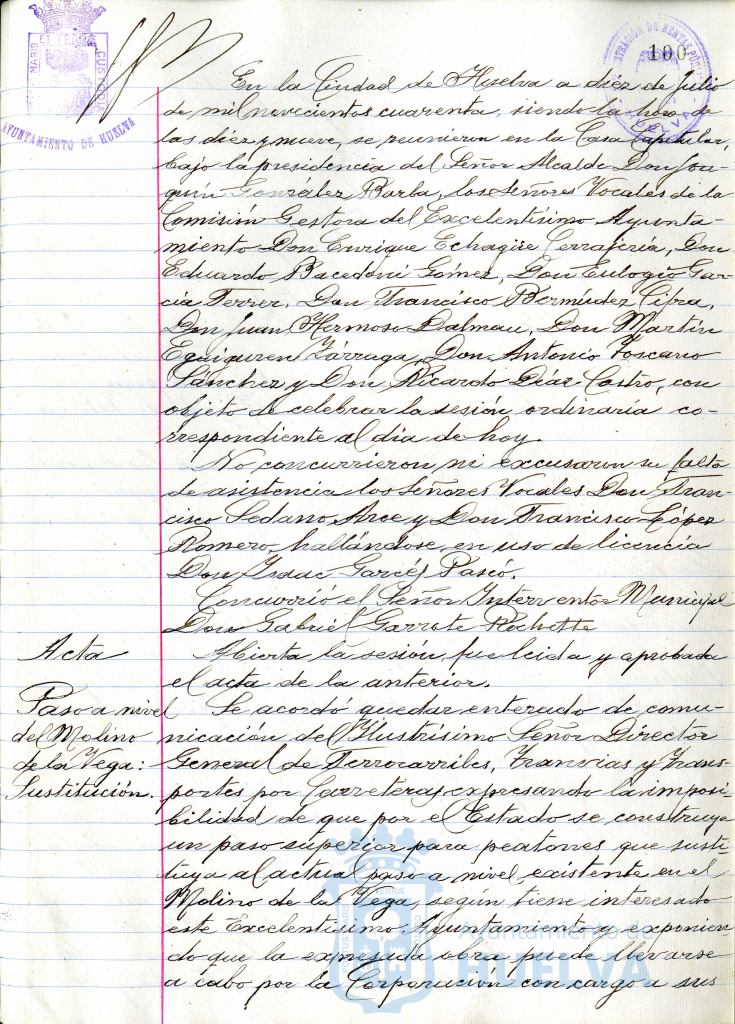 MARIS
ET TERRÆ
CUSTODIA
AYUNTAMIENTO DE HUELVA
HUELVA
100
En la Ciudad de Huelva a diéz de Julio
de mil novecientos cuarenta, siendo la hora de
las diéz y nueve, se reunieron en la Casa Capitular,
bajo la presidencia del Señor Alcalde Don Joa-
quín González Barba, los Señores Vocales de la
Comisión Gestora del Excelentísimo Ayunta-
miento Don Enrique Echagüe Cerrajería, Don
Eduardo Bacedoni Gómez, Don Eulogio Gar-
cía Ferrer, Don Francisco Bermúdez Cifra,
Don Juan Hermoso Dalmau, Don Martín
Eguiguren Zárraga, Don Antonio Toscano
Sánchez y Don Ricardo Díaz Castro, con
objeto de celebrar la sesión ordinaria co-
rrespondiente al día de hoy.
No concurrieron ni excusaron su falta
de asistencia los Señores Vocales Don Fran-
cisco Sedano Arce y Don Francisco López
Romero, hallándose en uso de licencia
Don Isaac Garcés Pascó.
Concurrió el Señor Interventor Municipal
Don Gabriel Garrote Rochette
Acta
Abierta la sesión fue leida y aprobada
el acta de la anterior.
Paso a nivel
del Molino
de la Vega:
Sustitución.
Se acordó quedar enterado de comu-
nicación del Ilustrísimo Señor Director
General de Ferrocarriles, Tranvías y Trans-
portes por Carreteras expresando la imposi-
bilidad de que por el Estado se construya
un paso superior para peatones que susti-
tuya al actual paso a nivel existente en el
Molino de la Vega, según tiene interesado
este Excelentísimo Ayuntamiento y exponien-
do que la expresada obra puede llevarse
a cabo por la Corporación con cargo a sus
Ayuntamiento de
HUELVA